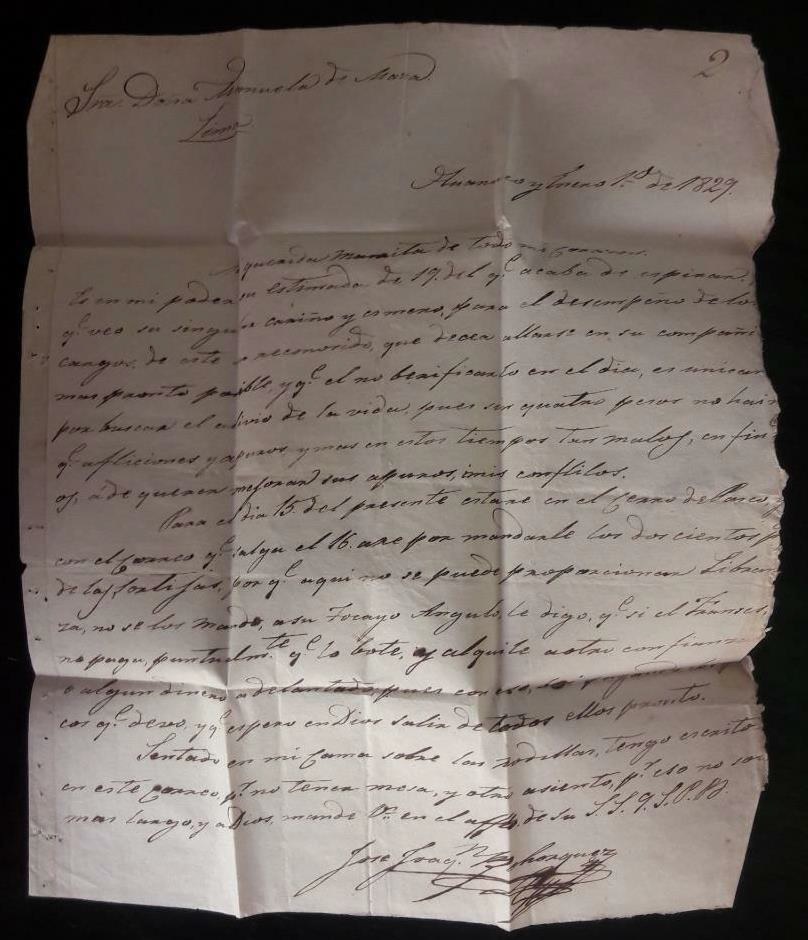 2
Sra. Doña Manuela de Mara
Lima
Huanuco y Enero 1.º de 1829.
querida Manita de todo mi corazon.
Es en mi poder su estimada de 19. del q.e acaba de espirar,
q.e veo su singular cariño y esmero, para el desempeño de los
cargos, de este reconosido, que decea allarse en su compañi
mas pronto posible, y q.e el no berificarlo en el dia, es unicam
por buscar el alivio de la vida, pues sin quatro pesos no hai
q.e afliciones y apuros, y mas en estos tiempos tan malos, en fin
os, á de querer mejorar sus apuros, i mis conflitos.
Para el dia 15. del presente estare en el Cerro de Pasco, y
con el Correo q.e salga el 16. are por mandarle los dos cientos p
de las sortijas, por q.e aqui no se puede proporcionar Libran
za, no se los mando, a su Tocayo Angulo, le digo, q.e si el Frances,
no paga, puntualm.te q.e lo bote, y alquile a otro confianza
o algun dinero adelantado, pues con eso,
cos q.e devo, y q.e espero en Dios salir de todos ellos pronto.
Sentado en mi Cama sobre las rodillas, tengo escrito
en este Correo, p.r no tener mesa, y otro asiento, p.r eso no soi
mas largo, y a Dios, mande V. en el affto. de su S. S. Q. S. P. B.
Jose Joaq.n